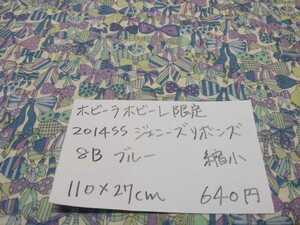 ホビーラホビーレ限定
2014SS ジェニーズリボンズ
8B ブルー 縮小
110×27cm 640円